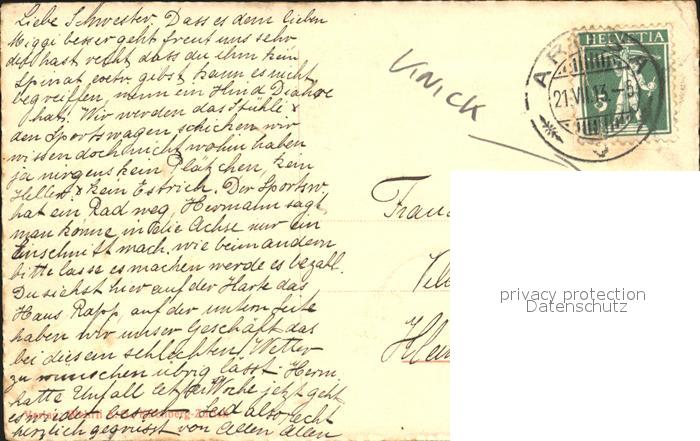 Liebe Schwester. Dass es dem lieben
Miggi besser geht freut uns sehr
du hast recht dass du ihm kein
Spinat gibst kann es nicht
begreiffen, wenn ein Kind Diahöe
hat. Wir werden das Stühli &
den Sportswagen schicken, wir
wissen doch nicht wohin haben
ja nirgens kein Plätzchen, kein
Keller & kein Estrich. Der Sportsw.
hat ein Rad weg, Hermann sagt
man könne in die Achse nur ein
Einschnitt mach. wie beim andern
bitte lasse es machen werde es bezahl.
Du siehst hier auf der Karte das
Haus Rapp auf der untern Seite
haben wir unser Geschäft das
bei diesem schlechten Wetter
zu wünschen übrig lasst. Herm.
hatte Unfall letzte Woche jetzt geht
es wieder besser. Seid also recht
herzlich gegrüsst von Allen Allen
VINICK
HELVETIA
5
21.VII.13.-5
Frau
privacy protection
Datenschutz